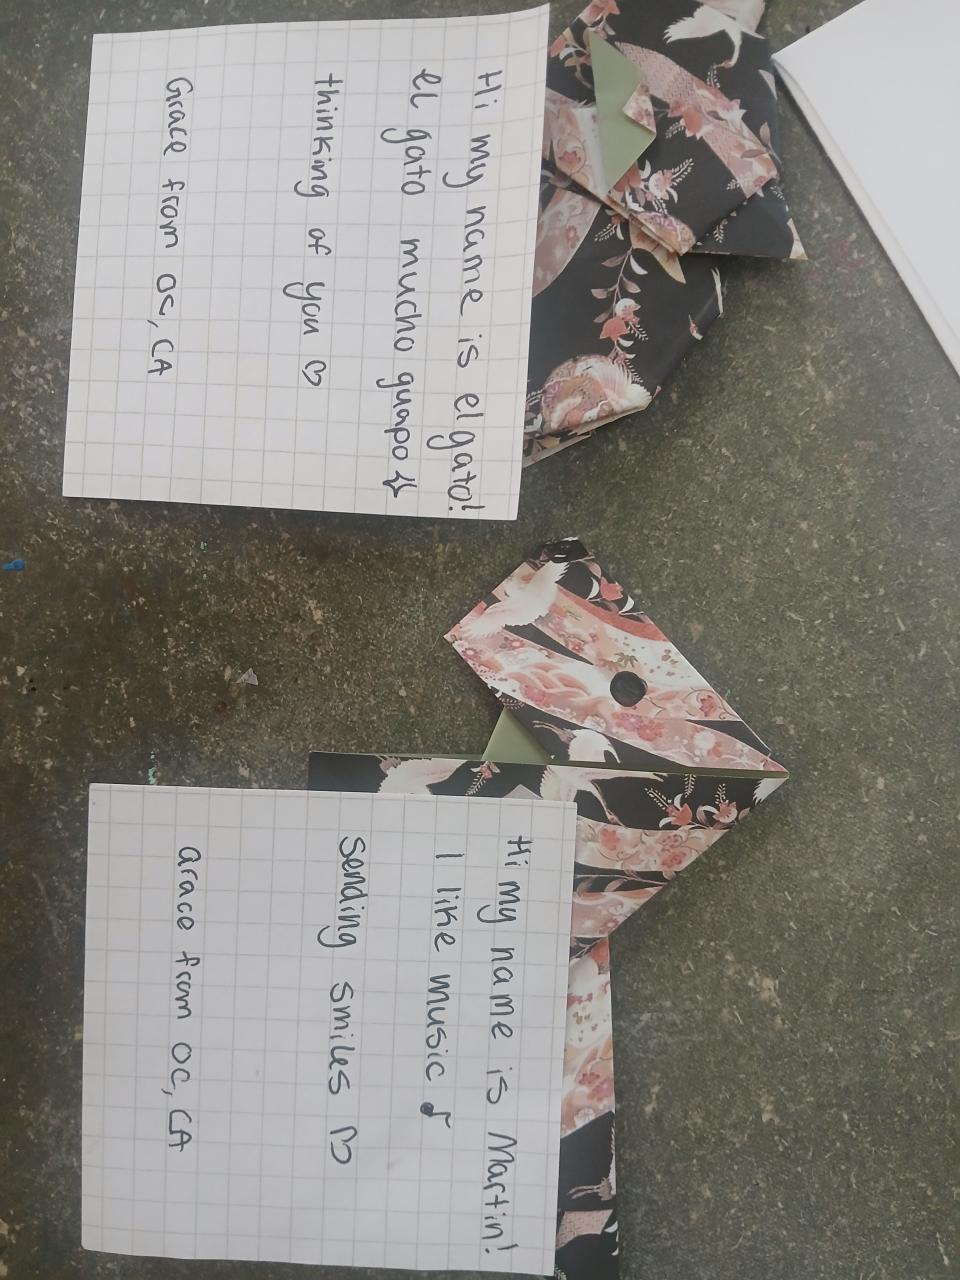 Hi my name is el gato!
el gato mucho guapo
thinking of you ♡
Grace from OC, CA
Hi my name is Martin!
I like music ♪
sending smiles ♡
Grace from OC, CA